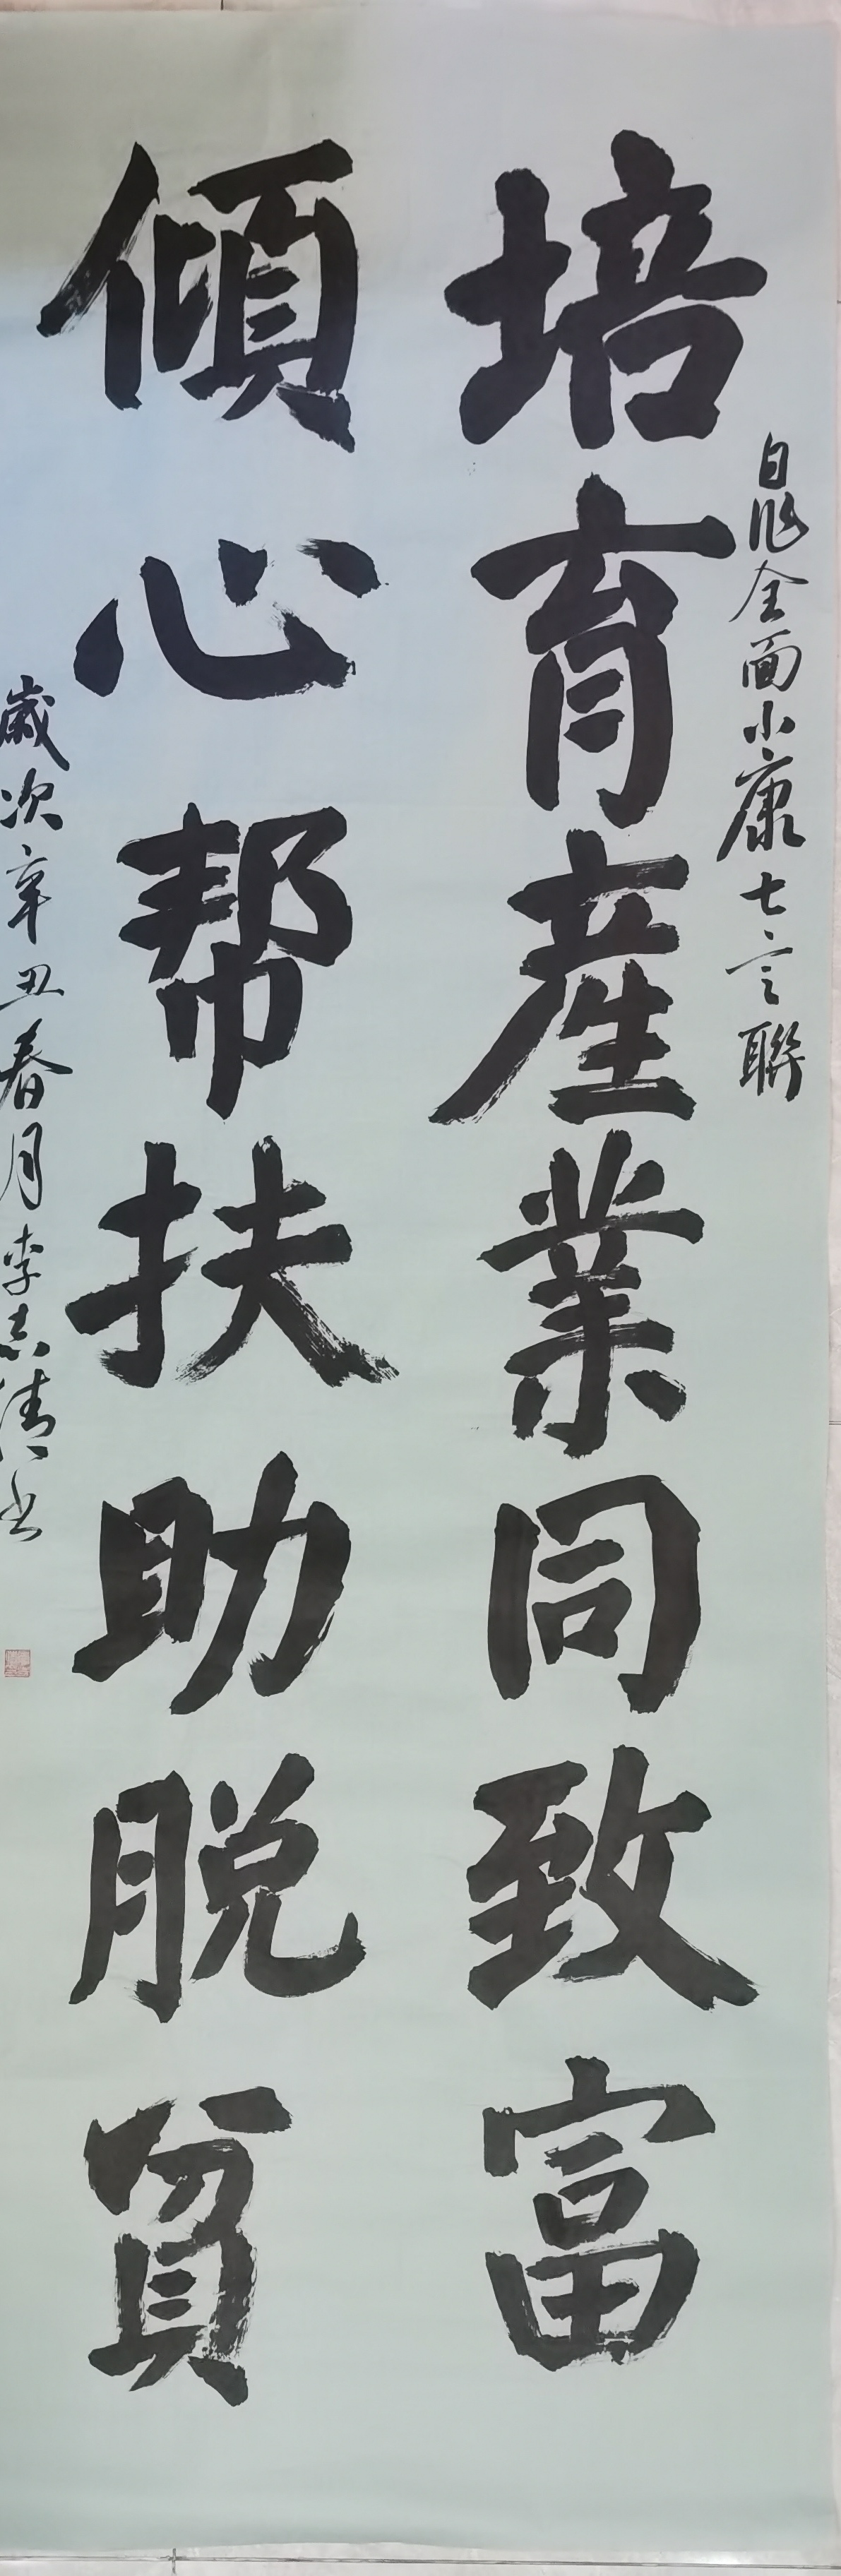 自作全面小康七言聯
培育產業同致富
傾心帮扶助脱貧
歲次辛丑春月李志清书